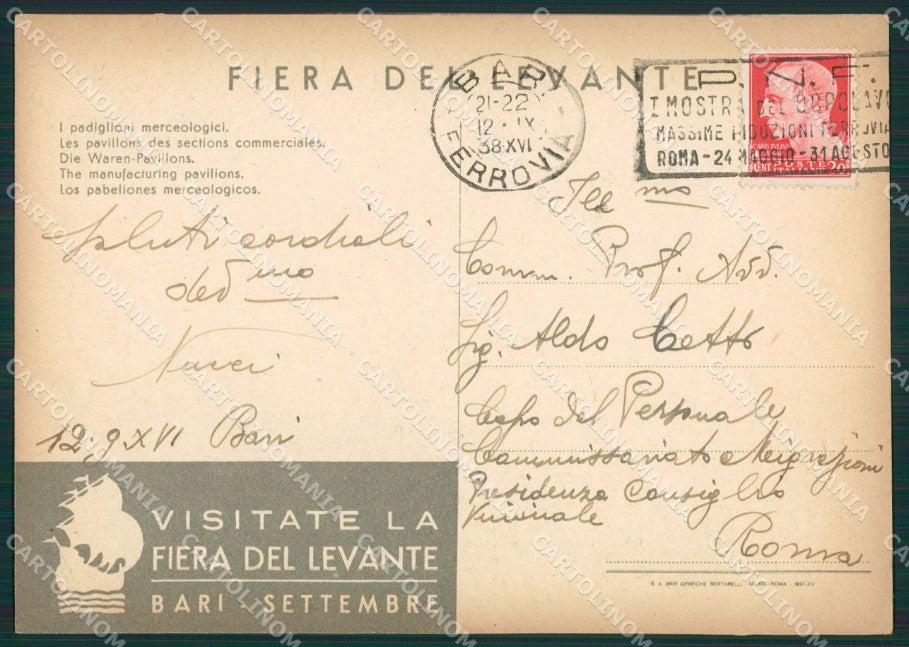 FIERA DEL LEVANTE
I padiglioni merceologici.
Les pavillons des sections commerciales.
Die Waren-Pavillons.
The manufacturing pavilions.
Los pabellones merceologicos.
BARI
21-22
12 · IX
38·XVI
FERROVIA
P.N.F.
I MOSTRA DEL DOPOLAVO
MASSIME RIDUZIONI FERROVIA
ROMA-24 MAGGIO-31 AGOSTO
POSTE
Saluti cordiali
dev mo
12.9 XVI Bari
Ill mo
Comm. Prof. Avv.
Sig. Aldo
Capo del Personale
Commissariato Migrazioni
Presidenza Consiglio
Roma
VISITATE LA
FIERA DEL LEVANTE
BARI SETTEMBRE
S. A. ARTI GRAFICHE BERTARELLI - MILANO-ROMA -
CARTOLINOMANIA